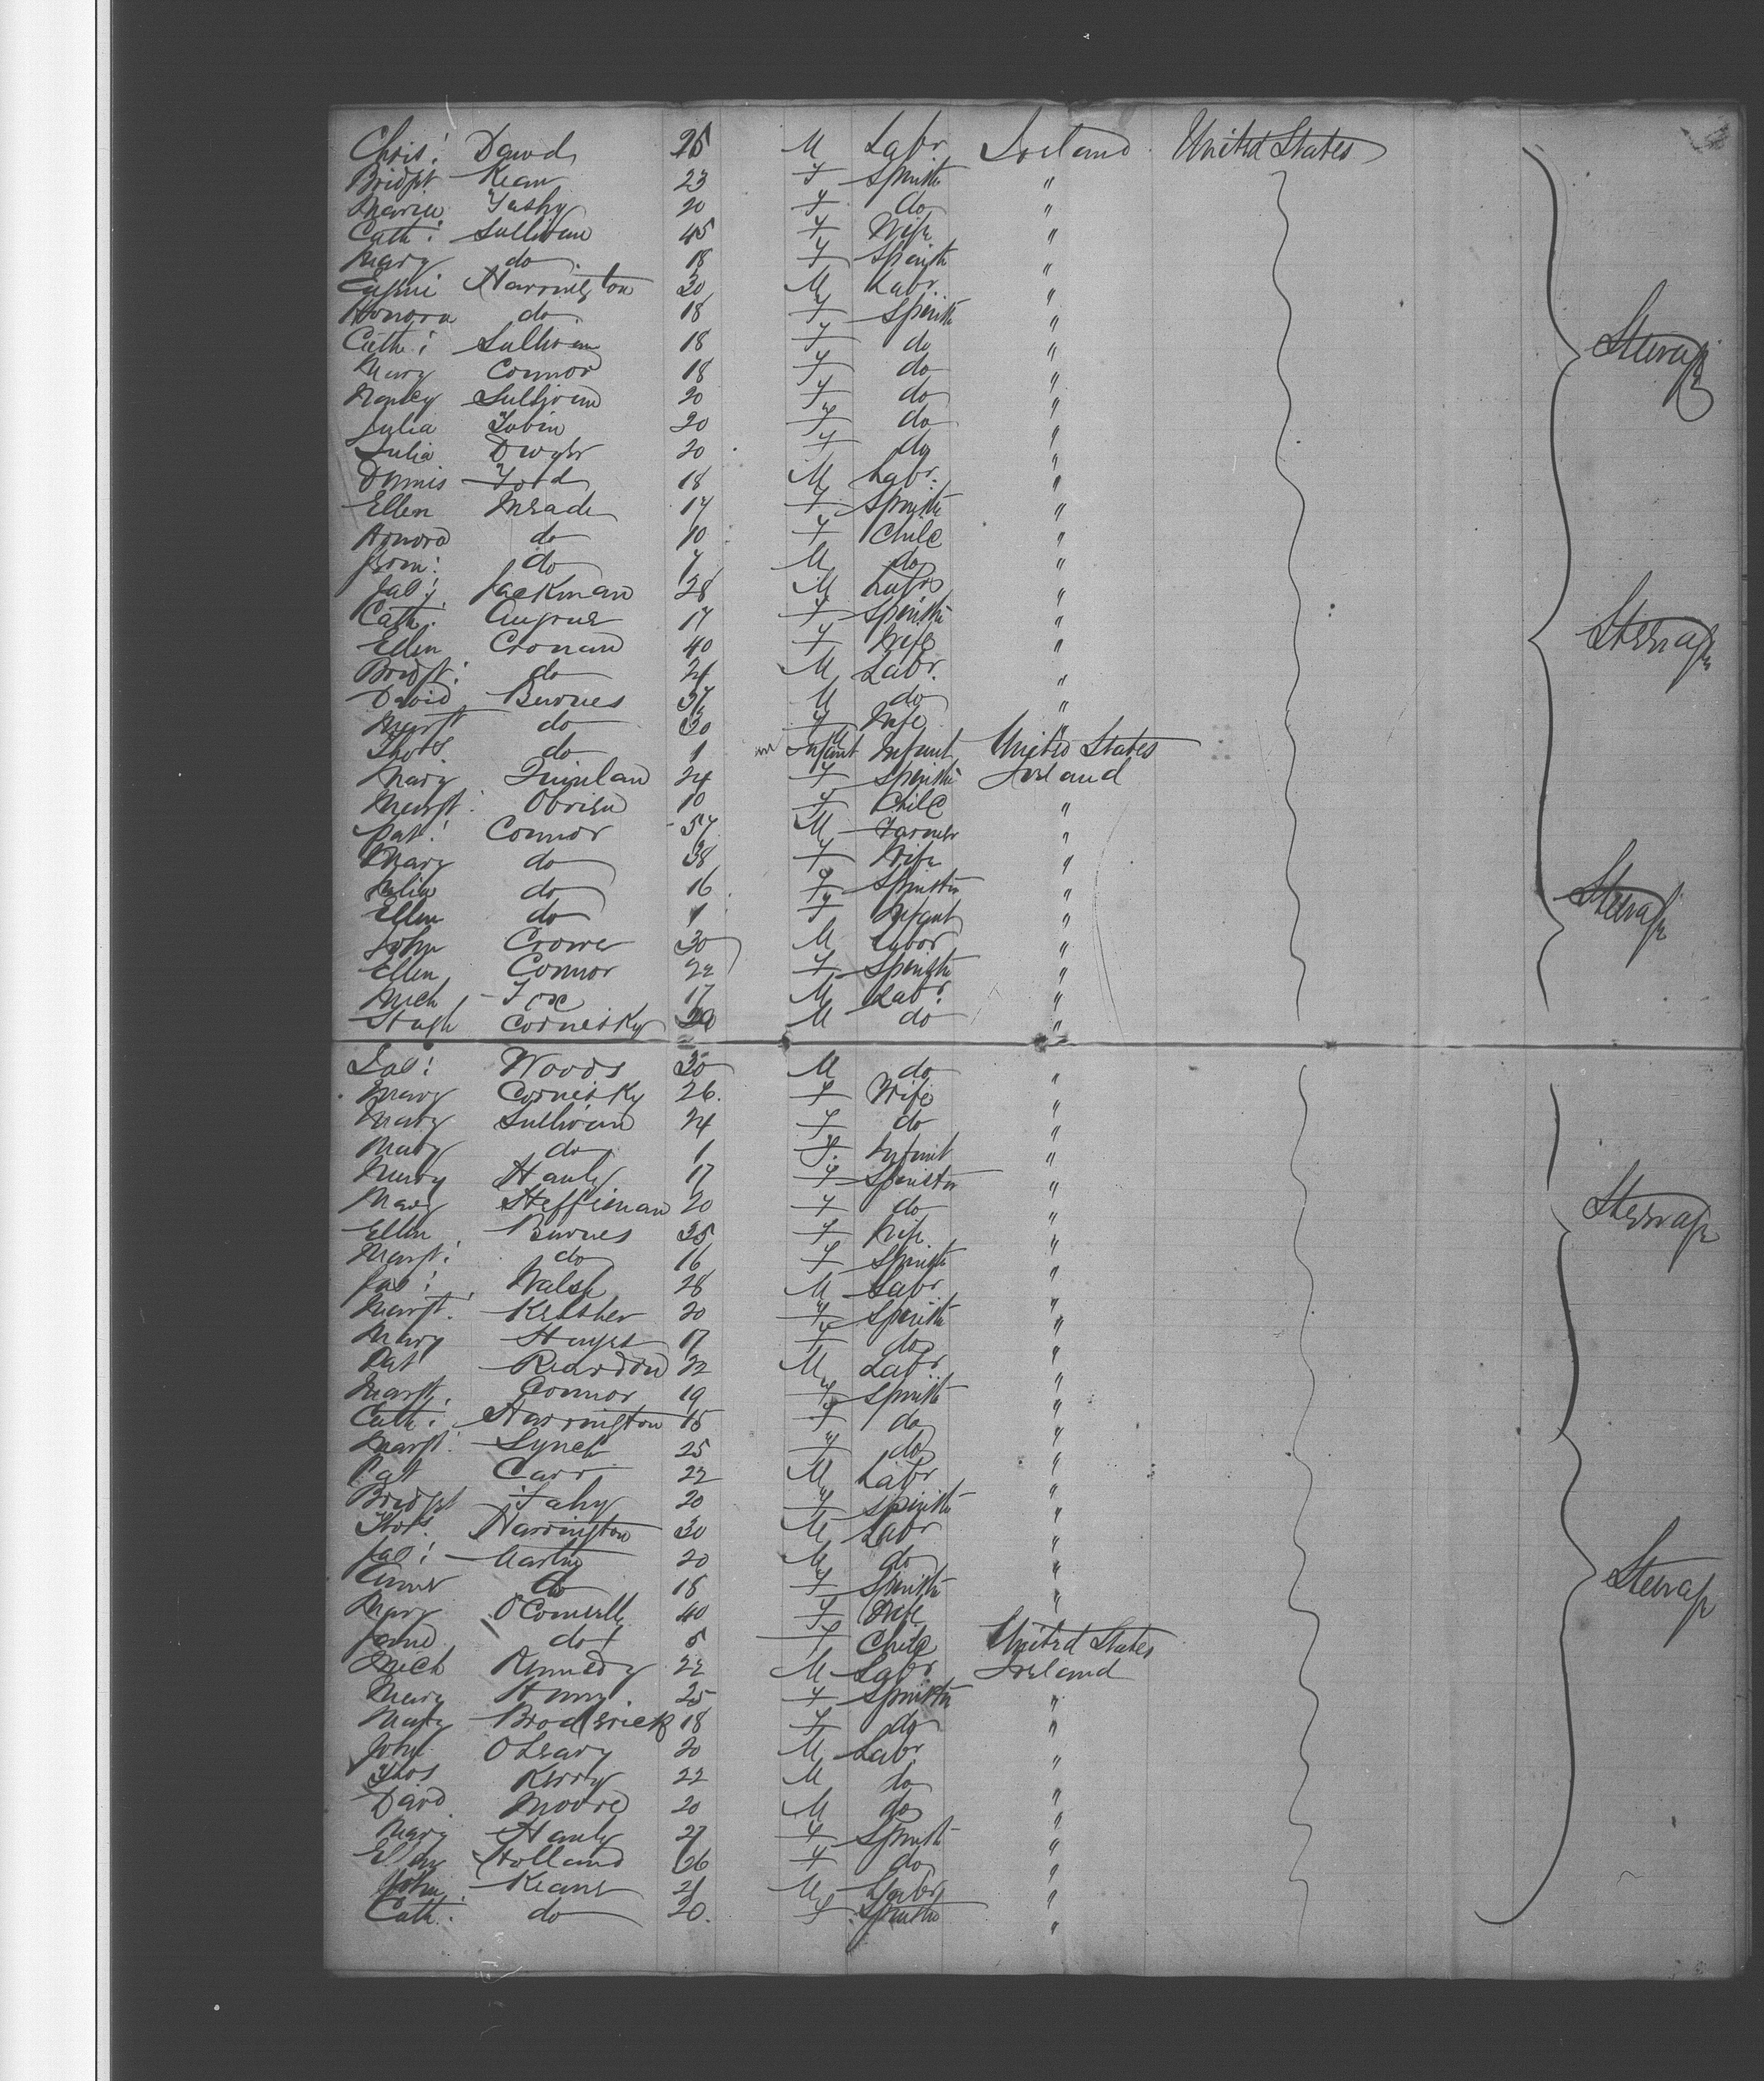 Chris: Dawd 25 M Labr Ireland United States
Bridgt Kean 23 F Spinstr "
Maria 20 F do "
Cath: Sullivan 45 F Wife "
Mary do 18 F Spinstr "
Harrington 30 M Labr "
Honora do 18 F Spinstr "
Cath: Sullivan 18 F do " Steerage
Mary Connor 18 F do "
Sullivan 20 F do "
Julia Tobin 20 F do "
Julia Dwyer 20 F do "
Dennis Ford 18 M Labr "
Ellen Meade 17 F Spinstr "
Honora do 10 F Child "
do 7 M do "
Jas: Jackman 28 M Labr "
Cath: 17 F Spinstr "
Ellen Cronan 40 F Wife " Steerage
Bridgt: do 24 M Labr. "
David Burnes 37 M do "
Margt do 30 F Wife "
Thos. do 1 m Infant Infant United States
Mary Quinlan 24 F Spinstr Ireland
Margt: Obrien 10 F Child "
Pat: Connor 57 M Farmer "
Mary do 38 F Wife "
Julia do 16 F Spinstr "
Ellen do 1 F Infant " Steerage
John Crowe 30 M Labor "
Ellen Connor 22 F Spinstr "
Mich Fox 17 M Labr. "
Hugh Cornisky 30 M do "
Jas: Woods 30 M do "
Mary Cornisky 26. F Wife "
Mary Sullivan 24 F do "
Mary do 1 F. Infant "
Mary Hanly 17 F Spinstr "
Mary Heffernan 20 F do " Steerage
Ellen Burnes 35 F Wife "
Margt: do 16 F Spinstr "
Jas: Walsh 28 M Labr "
Margt: Kelsher 20 F Spinstr "
Mary Hayes 17 F do "
Pat Reardon 22 M Labr "
Margt. Connor 19 F Spinstr "
Cath: Harrington 15 F do "
Margt: Lynch 25 F do "
Pat Carr 22 M Labr "
Bridgt Fahy 20 F Spinstr "
Thos. Harrington 30 M Labr "
Jas: 20 M do "
do 18 F Spinstr " Steerage
Mary O'Connell 40 F Wife "
do 5 F Child United States
Mich Kennedy 22 M Labr Ireland
Mary 25 F Spinstr "
Mary Broderick 18 F do "
John OLeary 20 M Labr "
Thos Kerry 22 M do
David Moore 20 M do "
Mary Hanly 27 F Spinstr "
Holland 26 F do "
John Keane 21 M Labr "
Cath: do 20. F Spinstr "